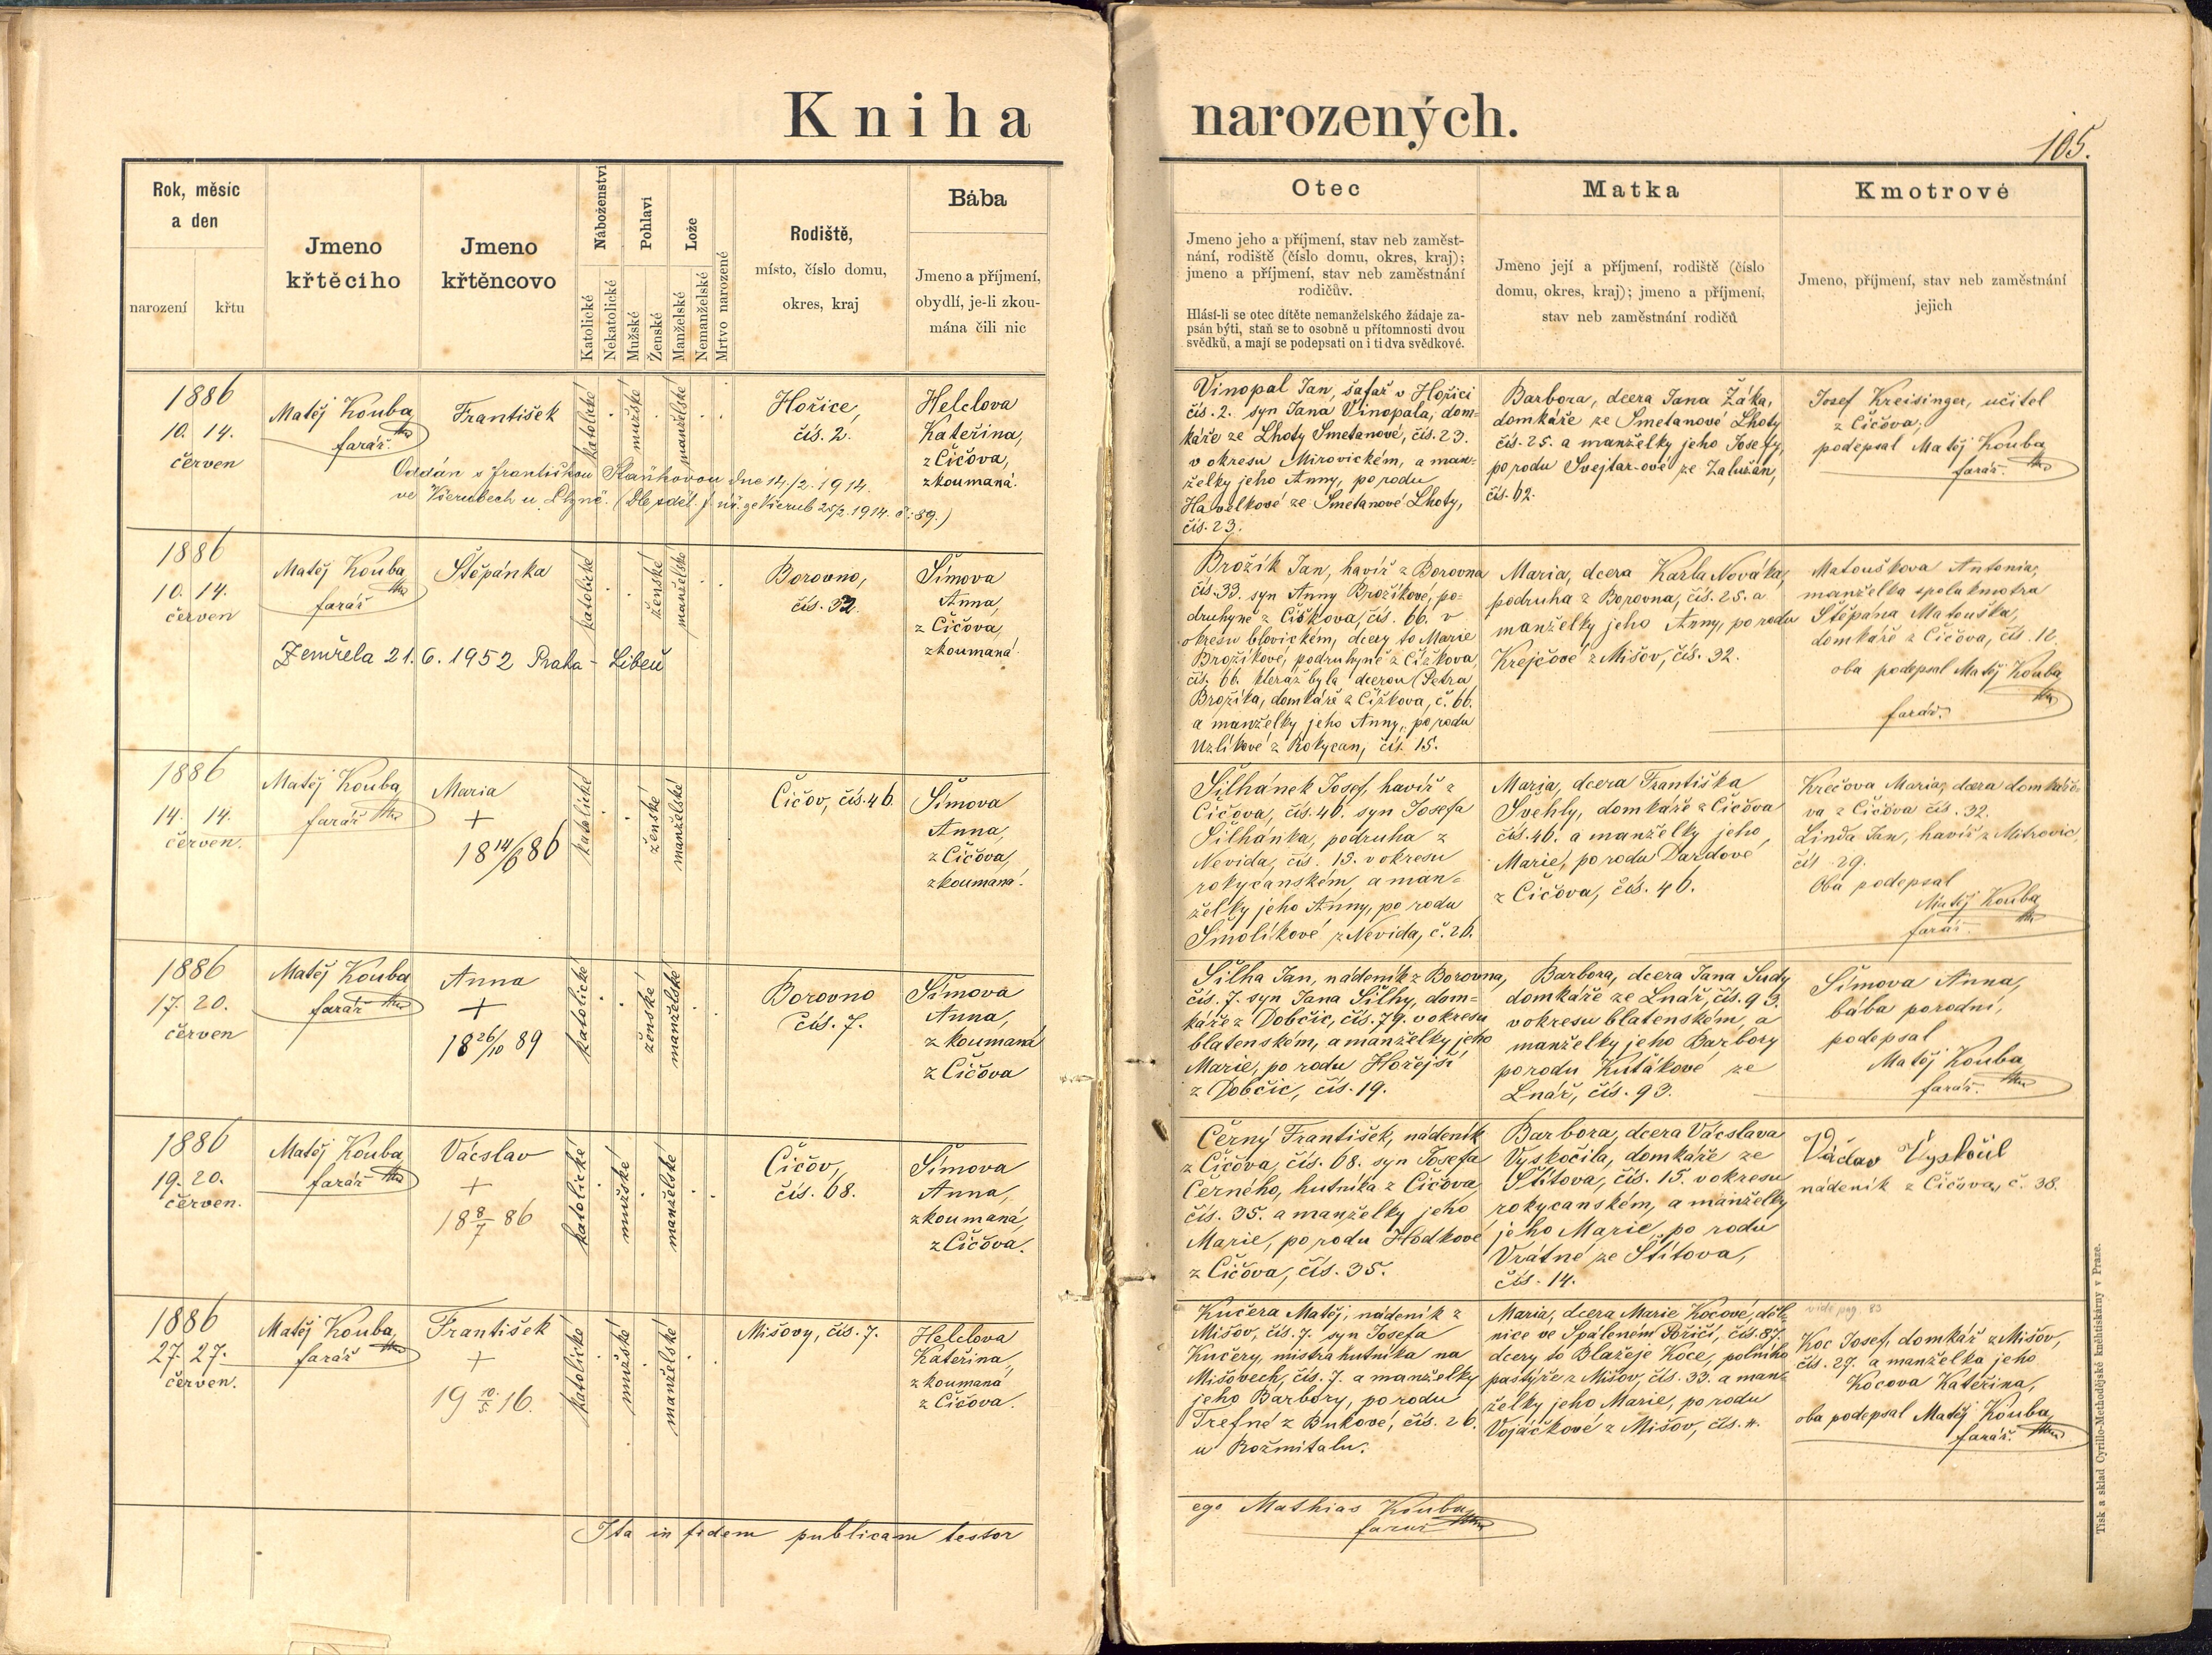 Kniha narozených.
105.
Rok, měsíc
a den
narození
křtu
Jmeno
křtěcího
Jmeno
křtěncovo
Náboženství
Katolické
Nekatolické
Pohlaví
Mužské
Ženské
Lože
Manželské
Nemanželské
Mrtvo narozené
Rodiště,
místo, číslo domu,
okres, kraj
Bába
Jmeno a příjmení,
obydlí, je-li zkou-
mána čili nic
Otec
Jmeno jeho a příjmení, stav neb zaměst-
nání, rodiště (číslo domu, okres, kraj);
jmeno a příjmení, stav neb zaměstnání
rodičův.
Hlásí-li se otec dítěte nemanželského žádaje za-
psán býti, staň se to osobně u přítomnosti dvou
svědků, a mají se podepsati on i ti dva svědkové.
Matka
Jmeno její a příjmení, rodiště (číslo
domu, okres, kraj); jmeno a příjmení,
stav neb zaměstnání rodičů
Kmotrové
Jmeno, příjmení, stav neb zaměstnání
jejich
1886
10. 14.
červen
Matěj Kouba
farář
František
katolické
mužské
manželské
Hořice,
čís. 2.
Helclova
Kateřina,
z Čičova,
zkoumaná.
Oddán s Františkou Staňkovou dne 14./2. 1914.
ve Vierubech u Plzně. (Dle sděl. f. úř. ze Vierub 25/2. 1914. č: 89.)
Vinopal Jan, šafař v Hořici
čís. 2. syn Jana Vinopala, dom-
káře ze Lhoty Smetanové, čís. 23.
v okresu Mirovickém, a man-
želky jeho Anny, po rodu
Havelkové ze Smetanové Lhoty,
čís. 23.
Barbora, dcera Jana Žáka,
domkáře ze Smetanové Lhoty
čís. 25. a manželky jeho Josefy,
po rodu Švejtar-ové ze Zalužan,
čís. 62.
Josef Kreisinger, učitel
z Čičova,
podepsal Matěj Kouba
farář.
1886
10. 14.
červen
Matěj Kouba
farář
Štěpánka
katolické
ženské
manželské
Borovno,
čís. 32.
Šímova
Anna,
z Čičova,
zkoumaná.
Zemřela 21. 6. 1952 Praha - Libeň
Brožík Jan, havíř z Borovna
čís. 33. syn Anny Brožíkové, po-
druhyně z Čížkova, čís. 66. v
okresu blovickém, dcery to Marie
Brožíkové, podruhyně z Čížkova,
čís. 66. kteráž byla dcerou Petra
Brožíka, domkáře z Čížkova, č. 66.
a manželky jeho Anny, po rodu
Uzlíkové z Rokycan, čís. 15.
Maria, dcera Karla Nováka,
podruha z Borovna, čís. 25. a
manželky jeho Anny, po rodu
Krejčové z Mišov, čís. 32.
Matouškova Antonia,
manželka spolukmotra
Štěpána Matouška,
domkáře z Čičova, čís. 12.
oba podepsal Matěj Kouba
farář.
1886
14. 14.
červen.
Matěj Kouba
farář
Maria
+
18 14/6 86
katolické
ženské
manželské
Čičov, čís. 46.
Šímova
Anna,
z Čičova,
zkoumaná.
Šilhánek Josef, havíř z
Čičova, čís. 46. syn Josefa
Šilhánka, podruha z
Nevida, čís. 15. v okresu
rokycanském, a man-
želky jeho Anny, po rodu
Smolíkové z Nevida, č. 26.
Maria, dcera Františka
Švehly, domkáře z Čičova
čís. 46. a manželky jeho
Marie, po rodu Dardové
z Čičova, čís. 46.
Krečova Maria, dcera domkářo-
va z Čičova čís. 32.
Linda Jan, havíř z Mitrovic,
čís. 29.
Oba podepsal
Matěj Kouba
farář.
1886
17. 20.
červen
Matěj Kouba
farář
Anna
+
18 26/10 89
katolické
ženské
manželské
Borovno
čís. 7.
Šímova
Anna,
zkoumaná
z Čičova
Šilha Jan, nádeník z Borovna,
čís. 7. syn Jana Šilhy, dom-
káře z Dobčic, čís. 79. v okresu
blatenském, a manželky jeho
Marie, po rodu Hořejší
z Dobčic, čís. 19.
Barbora, dcera Jana Sudy
domkáře ze Lnář, čís. 93.
v okresu blatenském, a
manželky jeho Barbory
po rodu Kutákové ze
Lnář, čís. 93.
Šímova Anna,
bába porodní,
podepsal
Matěj Kouba
farář.
1886
19. 20.
červen.
Matěj Kouba
farář
Vácslav
+
18 8/7 86
katolické
mužské
manželské
Čičov,
čís. 68.
Šímova
Anna,
zkoumaná,
z Čičova.
Černý František, nádeník
z Čičova, čís. 68. syn Josefa
Černého, hutníka z Čičova,
čís. 35. a manželky jeho
Marie, po rodu Hodkové
z Čičova, čís. 35.
Barbora, dcera Vácslava
Vyskočila, domkáře ze
Štítova, čís. 15. v okresu
rokycanském, a manželky
jeho Marie, po rodu
Vrátné ze Štítova,
čís. 14.
Václav Vyskočil
nádeník z Čičova, č. 38.
1886
27. 27.
červen.
Matěj Kouba,
farář
František
+
19 10/5 16.
katolické
mužské
manželské
Mišovy, čís. 7.
Helclova
Kateřina,
zkoumaná
z Čičova.
Kučera Matěj, nádeník z
Mišov, čís. 7. syn Josefa
Kučery, mistra hutníka na
Mišovech, čís. 7. a manželky
jeho Barbory, po rodu
Trefné z Bukové, čís. 26.
u Rožmitalu.
Maria, dcera Marie Kocové, děl-
nice ve Spáleném Poříčí, čís. 87.
dcery to Blažeje Koce, polního
pastýře z Mišov, čís. 33. a man-
želky jeho Marie, po rodu
Vojáčkové z Mišov, čís. 4.
vide pag. 83
Koc Josef, domkář z Mišov,
čís. 27. a manželka jeho
Kocova Kateřina,
oba podepsal Matěj Kouba
farář.
Ita in fidem publicam testor
ego Mathias Kouba,
farář
Tisk a sklad Cyrillo-Methodějské kněhtiskárny v Praze.